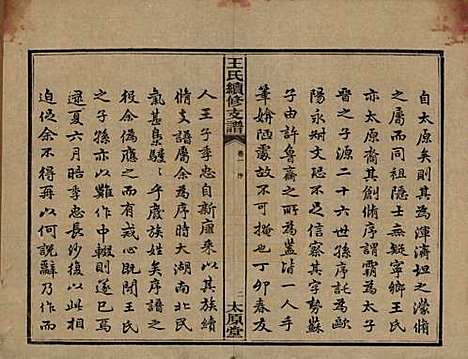 自太原矣則其為渾濟坦之濛脩
之屬而同祖隱士無疑寧鄉王氏
亦太原裔其創脩序謂霸為太
晉之子源二十六世孫序託之歐
陽永叔文恐不足信察其字勢蘇
子由許魯齋之所為蓋清一人
筆媊陋處故不可掩丁卯春友
王氏續修支譜
卷一 序
二
太原堂
人王子季忠自新康來以其族續
脩支譜屬余為序時大湖南北民
氣甚梟騷乎廢族姓矣序之
役余偽應之而心慨既閱王氏
之子孫亦以難作中輟則遂已焉
逮夏六月晤季忠長沙復以前請
迫促余不得再以説辭乃作而